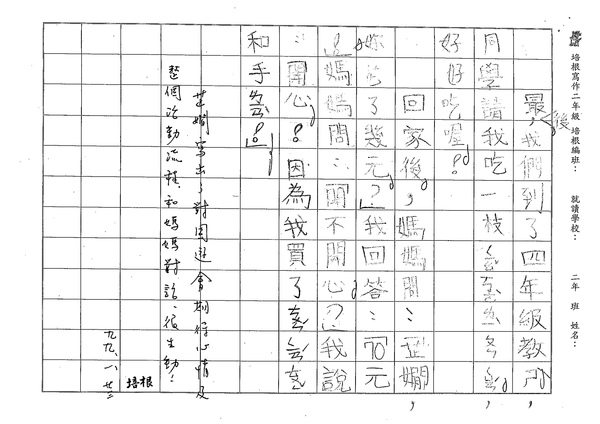 培根寫作二年級 培根編班： 就讀學校： 二年 班 姓名：
最後，我們到了四年級教室，
同學請我吃一枝
好好吃喔！
回家後，媽媽問：「芷嫻，
妳花了幾元？」我回答：「70元
。」媽媽問：「開不開心？」我說
：「開心！因為我買了
和手
芷嫻寫出了對園遊會期待心情及
整個活動流程，和媽媽對話，很生動！
九九、八、廿三
培根